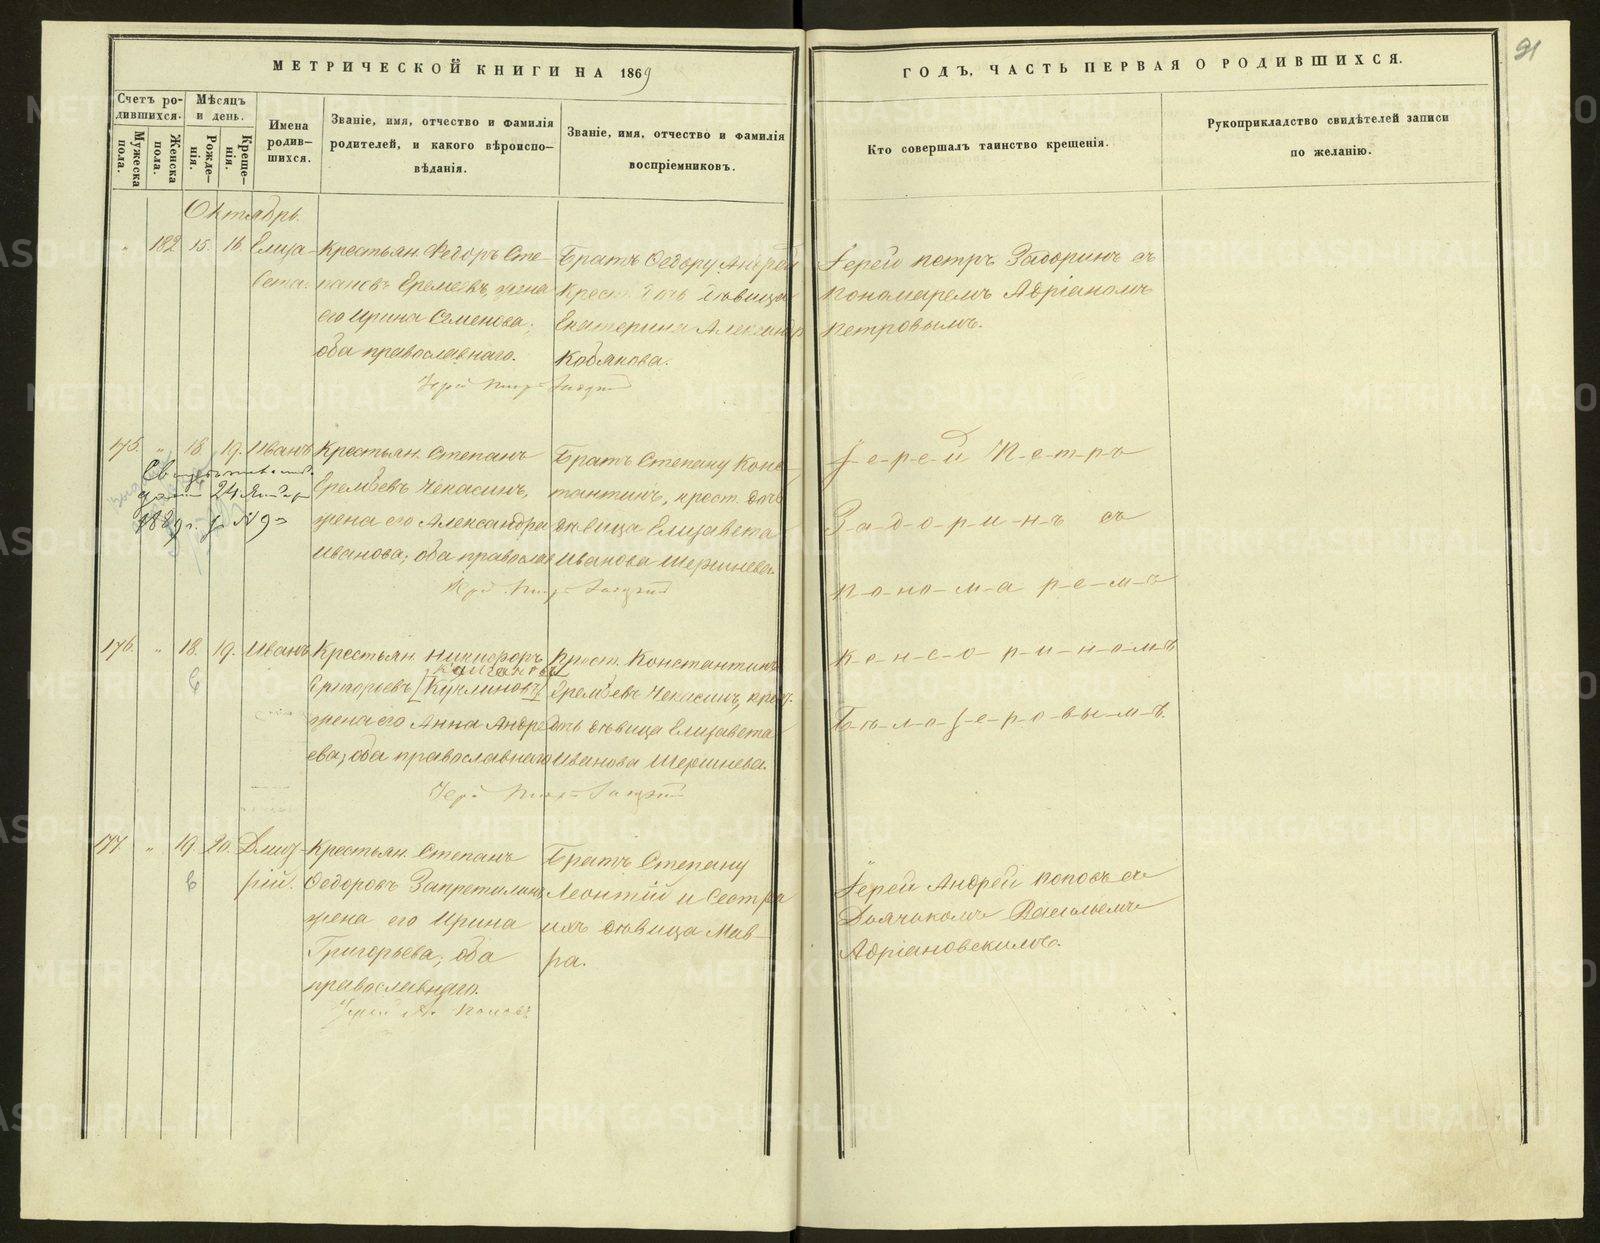 МЕТРИЧЕСКОЙ КНИГИ НА 1869
ГОДЪ, ЧАСТЬ ПЕРВАЯ О РОДИВШИХСЯ.
91
Счетъ ро-
дившихся.
Мужеска
пола.
Женска
пола.
Мѣсяцъ
и день.
Рожде-
нія.
Креще-
нія.
Имена
родив-
шихся.
Званіе, имя, отчество и фамилія
родителей, и какого вѣроиспо-
вѣданія.
Званіе, имя, отчество и фамилія
воспріемниковъ.
Кто совершалъ таинство крещенія.
Рукоприкладство свидѣтелей записи
по желанію.
Октябрь.
" 182 15. 16. Елиза-
вета.
Крестьян. Ѳедоръ Сте-
пановъ Еремѣевъ, жена
его Ирина Семенова;
оба православнаго.
Братъ Ѳедору Андрей
Крест. дочь дѣвица
Екатерина Александр.
Кобякова.
Іерей Петръ Задоринъ съ
пономаремъ Адріаномъ
Петровымъ.
175. " 18. 19. Иванъ
24 Янв
1889 г. № 93
Крестьян. Степанъ
Еремѣевъ Чекасинъ,
жена его Александра
Иванова; оба православ
Братъ Степану Конс-
тантинъ, крест. дочь
дѣвица Елизавета
Иванова Шершнева.
І-е-р-е-й П-е-т-р-ъ
З-а-д-о-р-и-н-ъ съ
п-о-но-м-а р-е-м-ъ
К-е-н-с-о р-и-н-о-м-ъ
Б-ѣ-л-о-з-е-р-о-вы-м-ъ.
176. " 18. 19. Иванъ
Крестьян. Никифоръ
Григорьевъ [Кучлиновъ]
жена его Анна Андре-
ева; оба православнаго
Крест. Константинъ
Еремѣевъ Чекасинъ, крест.
дочь дѣвица Елизавета
Иванова Шершнева.
177 " 19. 20. Дмит-
рій.
Крестьян. Степанъ
Ѳедоровъ Запретилинъ,
жена его Ирина
Григорьева; оба
православнаго.
Іерей А. Поповъ
Братъ Степану
Леонтій и Сестра
ихъ дѣвица Мав-
ра.
Іерей Андрей Поповъ съ
Дьячкомъ Васильемъ
Адріановскимъ.